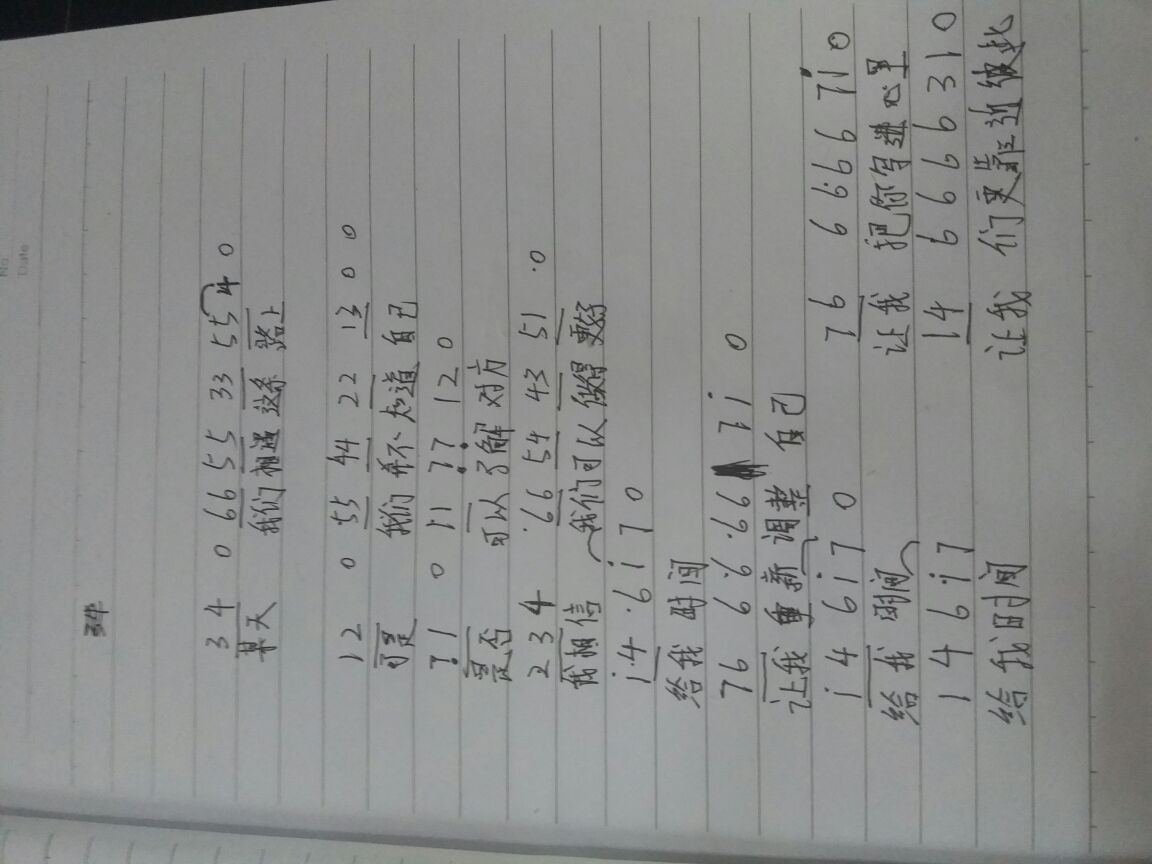 No.
Date
3 4 0 66 55 33 55 4 0
某天 我们 相遇 这条 路上
12 0 55 44 22 13 0 0
可是 我们 并不 知道 自己
71 0 11 77 12 0
是否 可以 了解 对方
2 3 4 ·66 54 43 51 ·0
我相信 我们可以做得更好
i4·6i70
给我时间
76 6·6·66 7i 0
让我重新调整 自己
i4 6i7 0 76 6 6·66 7i 0
给我时间 让我 把你写进心里
14 6·i7 14 6 6 6 6 3 1 0
给我时间 让我 们更靠近彼此